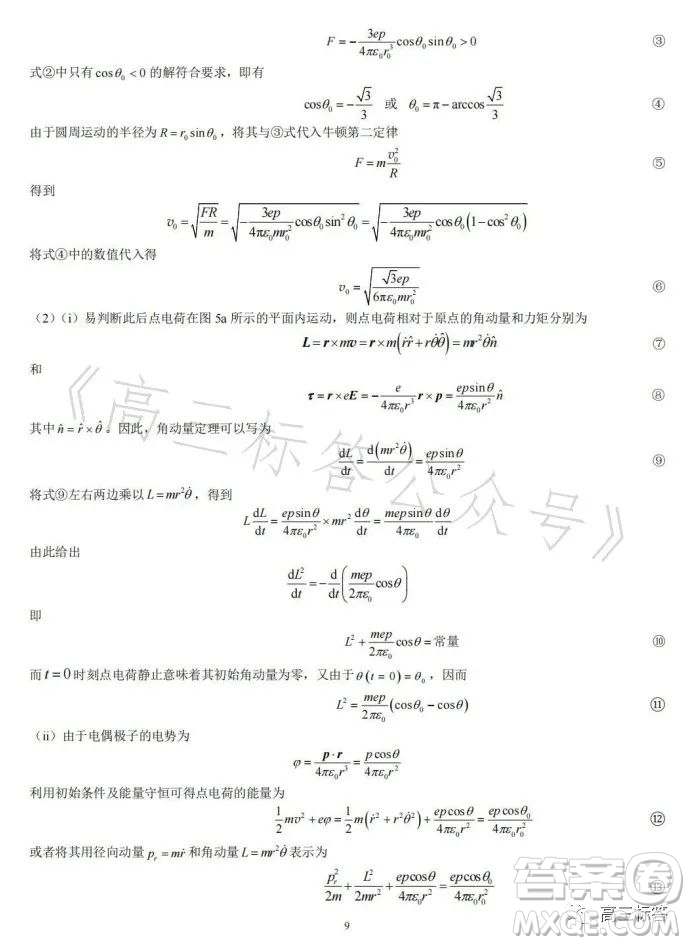 F = −\frac{3ep}{4πε_0 r_0^3} cosθ_0 sinθ_0 > 0 ③
式②中只有 cosθ_0 < 0 的解符合要求，即有
cosθ_0 = −\frac{\sqrt{3}}{3} 或 θ_0 = π − arccos\frac{\sqrt{3}}{3} ④
由于圆周运动的半径为 R = r_0 sinθ_0，将其与③式代入牛顿第二定律
F = m\frac{v_0^2}{R} ⑤
得到
v_0 = \sqrt{\frac{FR}{m}} = \sqrt{−\frac{3ep}{4πε_0 mr_0^2} cosθ_0 sin^2θ_0} = \sqrt{−\frac{3ep}{4πε_0 mr_0^2} cosθ_0 (1−cos^2θ_0)}
将式④中的数值代入得
v_0 = \sqrt{\frac{\sqrt{3}ep}{6πε_0 mr_0^2}} ⑥
（2）（i）易判断此后点电荷在图 5a 所示的平面内运动，则点电荷相对于原点的角动量和力矩分别为
L = r × mv = r × m(\dot{r}\hat{r} + r\dot{θ}\hat{θ}) = mr^2\dot{θ}\hat{n} ⑦
和
τ = r × eE = −\frac{e}{4πε_0 r^3} r × p = \frac{ep sinθ}{4πε_0 r^2}\hat{n} ⑧
其中 \hat{n} = \hat{r} × \hat{θ}。因此，角动量定理可以写为
\frac{dL}{dt} = \frac{d(mr^2\dot{θ})}{dt} = \frac{ep sinθ}{4πε_0 r^2} ⑨
将式⑨左右两边乘以 L = mr^2\dot{θ}，得到
L\frac{dL}{dt} = \frac{ep sinθ}{4πε_0 r^2} × mr^2\frac{dθ}{dt} = \frac{mep sinθ}{4πε_0}\frac{dθ}{dt}
由此给出
\frac{dL^2}{dt} = −\frac{d}{dt}(\frac{mep}{2πε_0} cosθ)
即
L^2 + \frac{mep}{2πε_0} cosθ = 常量 ⑩
而 t = 0 时刻点电荷静止意味着其初始角动量为零，又由于 θ(t = 0) = θ_0，因而
L^2 = \frac{mep}{2πε_0}(cosθ_0 − cosθ) ⑪
（ii）由于电偶极子的电势为
φ = \frac{p·r}{4πε_0 r^3} = \frac{p cosθ}{4πε_0 r^2}
利用初始条件及能量守恒可得点电荷的能量为
\frac{1}{2}mv^2 + eφ = \frac{1}{2}m(\dot{r}^2 + r^2\dot{θ}^2) + \frac{ep cosθ}{4πε_0 r^2} = \frac{ep cosθ_0}{4πε_0 r_0^2} ⑫
或者将其用径向动量 p_r = m\dot{r} 和角动量 L = mr^2\dot{θ} 表示为
\frac{p_r^2}{2m} + \frac{L^2}{2mr^2} + \frac{ep cosθ}{4πε_0 r^2} = \frac{ep cosθ_0}{4πε_0 r_0^2} ⑬
9
《高三标答公众号》
高三标答
答案圈
MXQE.COM